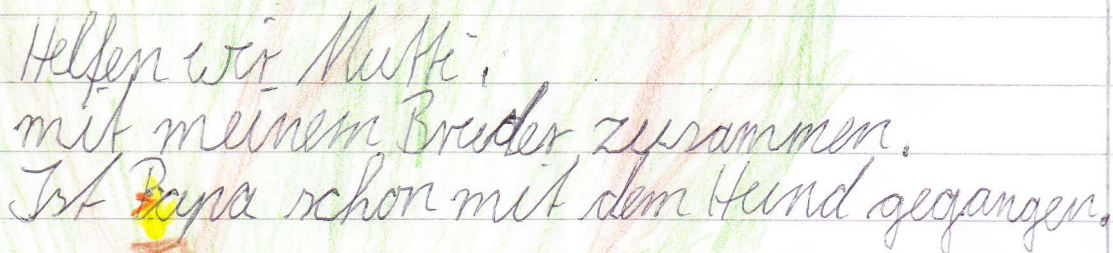 Helfen wir Mutti.
mit meinem Bruder zusammen.
Ist Papa schon mit dem Hund gegangen.